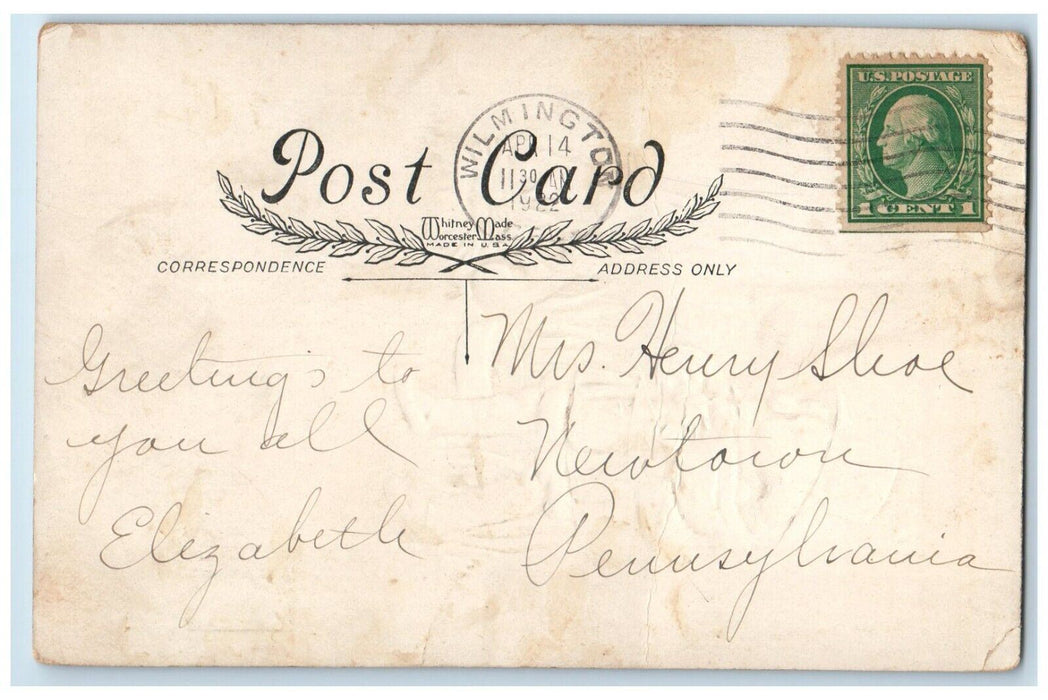 U.S. POSTAGE
1 CENT 1
WILMINGTON
APR 14
11 30 AM
1922
Post Card
Whitney Made
Worcester Mass
MADE IN U.S.A.
CORRESPONDENCE
ADDRESS ONLY
Greetings to
you all
Elizabeth
Mrs. Henry Shoe
Newtown
Pennsylvania